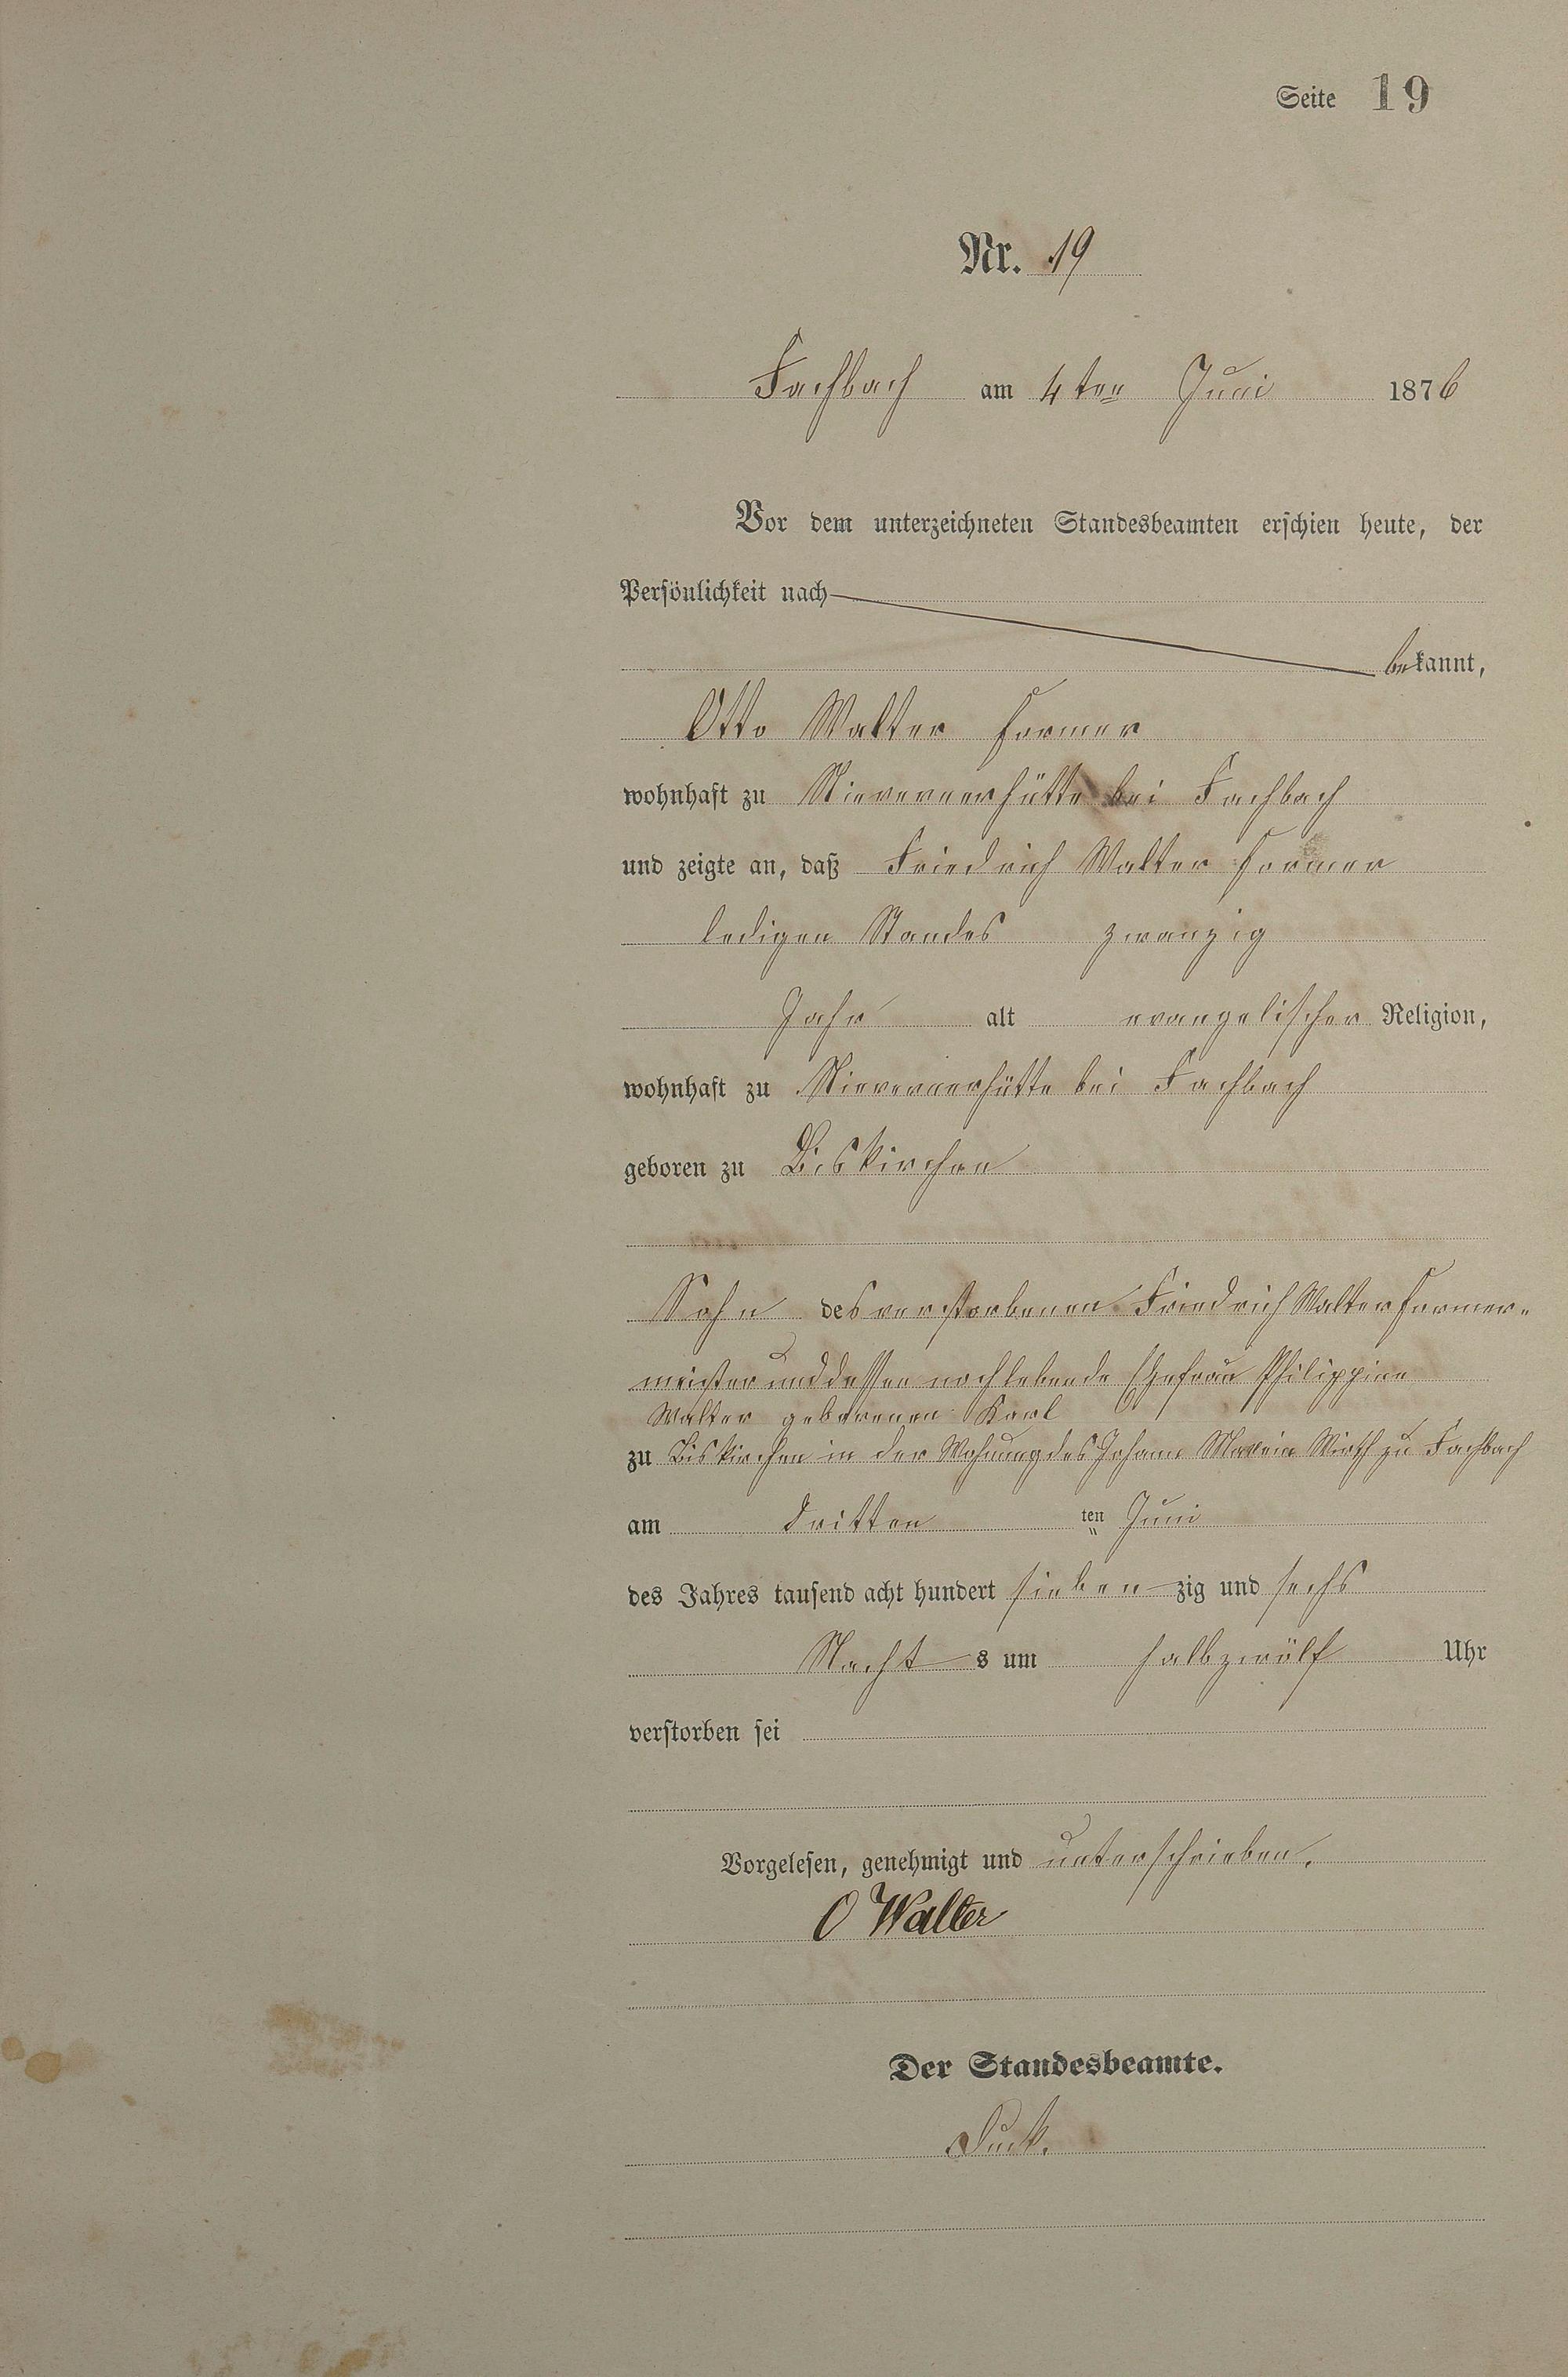 Seite 19
Nr. 19
Fachbach am 4ten Juni 1876
Vor dem unterzeichneten Standesbeamten erschien heute, der
Persönlichkeit nach
bekannt,
Otto Walter Former
wohnhaft zu Nievernerhütte bei Fachbach
und zeigte an, daß Friedrich Walter Former
ledigen Standes zwanzig
Jahr alt evangelischer Religion,
wohnhaft zu Nievernerhütte bei Fachbach
geboren zu Biskirchen
Sohn des verstorbenen Friedrich Walter Former-
meister und dessen noch lebende Ehefrau Philippine
Walter geborenen Karl
zu Biskirchen in der Wohnung des Johann Wirth zu Fachbach
am dritten ten Juni
des Jahres tausend acht hundert sieben zig und sechs
Nacht s um halbzwölf Uhr
verstorben sei
Vorgelesen, genehmigt und unterschrieben.
O Walter
Der Standesbeamte.